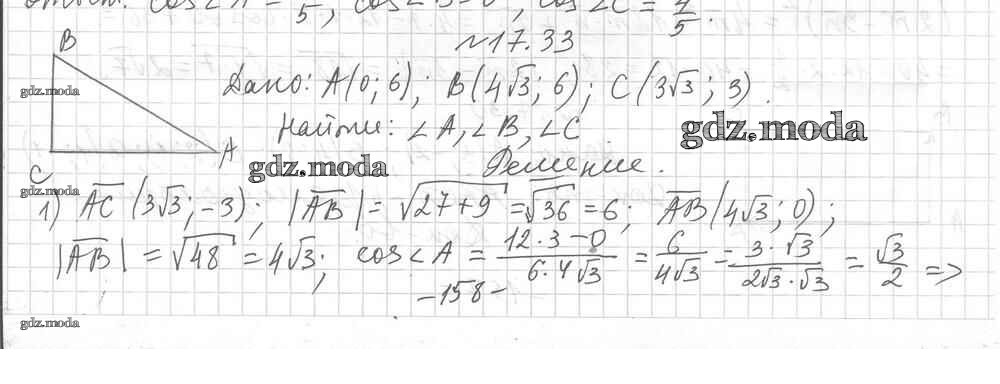 Ответ: cos∠A = 4/5, cos∠B = 0, cos∠C = 4/5.
№17.33
B
Дано: A(0; 6); B(4√3; 6); C(3√3; 3).
gdz.moda
Найти: ∠A, ∠B, ∠C
gdz.moda
A
gdz.moda
Решение.
C
gdz.moda
1) AC (3√3; -3); |AB| = √27+9 = √36 = 6; AB (4√3; 0);
|AB| = √48 = 4√3; cos∠A = 12·3-0 / 6·4√3 = 6/4√3 = 3·√3 / 2√3·√3 = √3/2 =>
-158-
gdz.moda